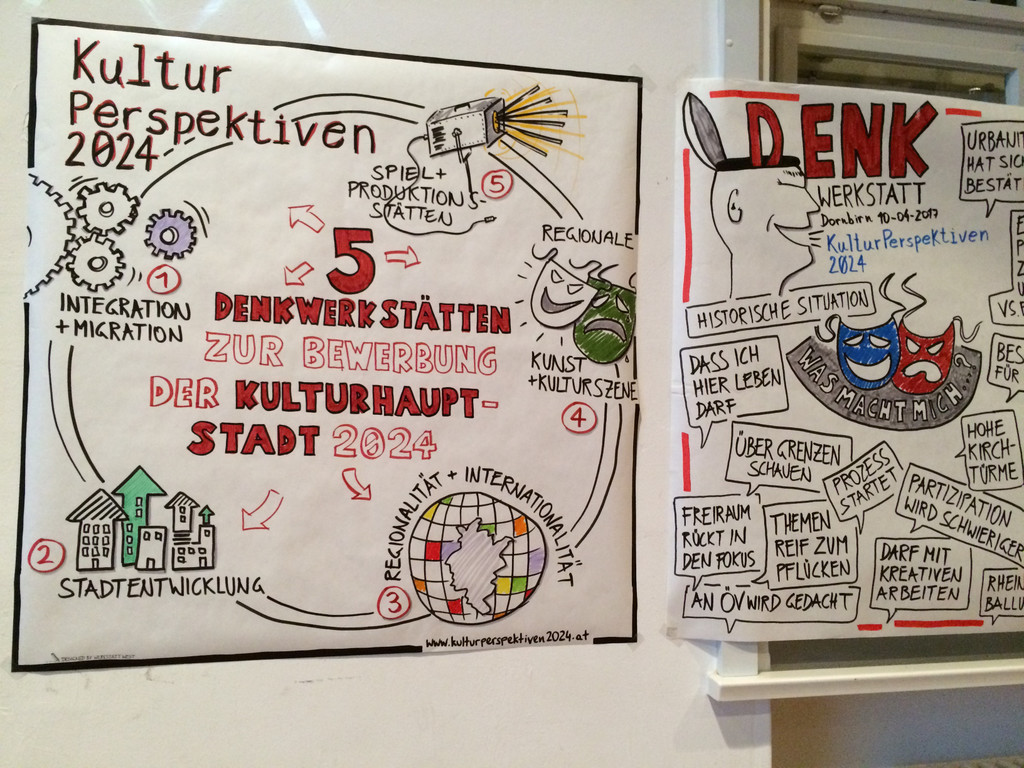 Kultur
Perspektiven
2024
1
INTEGRATION
+ MIGRATION
2
STADTENTWICKLUNG
3
REGIONALITÄT + INTERNATIONALITÄT
4
REGIONALE
KUNST
+KULTURSZENE
5
SPIEL+
PRODUKTIONS-
STÄTTEN
5
DENKWERKSTÄTTEN
ZUR BEWERBUNG
DER KULTURHAUPT-
STADT 2024
www.kulturperspektiven2024.at
DENK
WERKSTATT
Dornbirn 10-04-2017
KulturPerspektiven
2024
HISTORISCHE SITUATION
WAS MACHT MICH...?
DASS ICH
HIER LEBEN
DARF
ÜBER GRENZEN
SCHAUEN
PROZESS
STARTET
HOHE
KIRCH-
TÜRME
PARTIZIPATION
WIRD SCHWIERIGER
FREIRAUM
RÜCKT IN
DEN FOKUS
THEMEN
REIF ZUM
PFLÜCKEN
DARF MIT
KREATIVEN
ARBEITEN
AN ÖV WIRD GEDACHT
URBANIT
HAT SICH
BESTÄT
VS.
BES
FÜR
RHEIN
BALLU